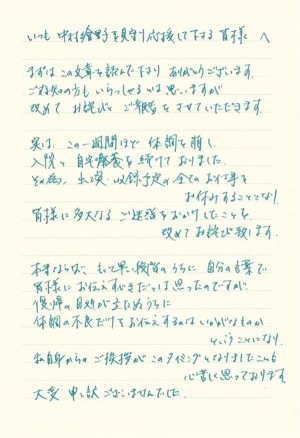 いつも 中村繪里子を見守り応援して下さる 皆様 へ
まずは この文章を読んで下さり ありがとうございます。
ご存知の方も いらっしゃるとは思いますが
改めて お詫びと ご報告を させていただきます。
実は、この一週間ほど 体調を崩し、
入院と 自宅療養を 続けて おりました。
その為、出演・収録予定の全てのお仕事を
お休みすることとなり
皆様に多大なる ご迷惑を おかけしたことを、
改めて お詫び致します。
本来ならば、もっと早い段階のうちに 自分の言葉で
皆様に お伝えすべきだとは思ったのですが、
復帰の目処が立たぬうちに
体調の不良だけを お伝えするのは いかがなものか
ということになり、
私自身からの ご挨拶が このタイミングとなりましたことも
心苦しく思っております。
大変 申し訳ございませんでした。